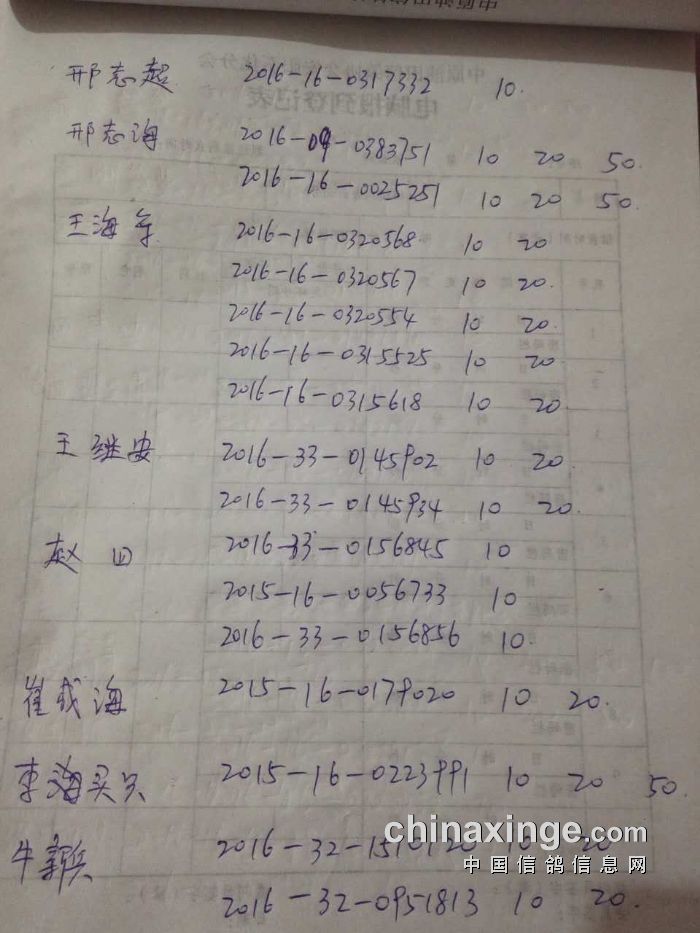 邢志超 2016-16-0317332 10.
邢志海 2016-09-0383751 10 20 50.
2016-16-0025251 10 20 50.
王海军 2016-16-0320568 10 20
2016-16-0320567 10 20.
2016-16-0320554 10 20.
2016-16-0315525 10 20.
2016-16-0315618 10 20.
王继安 2016-33-0145902 10 20.
2016-33-0145934 10 20.
赵四 2016-33-0156845 10
2015-16-0056733 10
2016-33-0156856 10.
崔成海 2015-16-0179020 10 20.
李海 2015-16-0223991 10 20 50.
牛 2016-32-1510120 10 20
chinaxinge.com
中国信鸽信息网
2016-32-0951813 10 20.